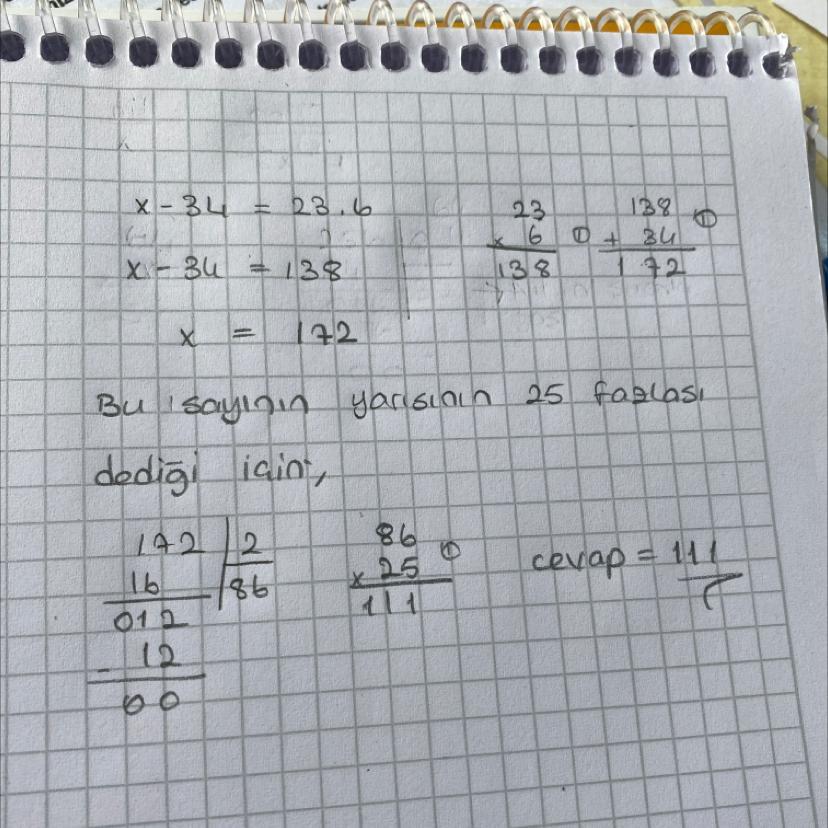 x - 34 = 23.6
x - 34 = 138
x = 172
23
x 6 1
138
138 1
+ 34
1 72
Bu sayının yarısının 25 fazlası
dediği için,
172 2
16 86
012
- 12
00
86
x 25 1
111
cevap = 111